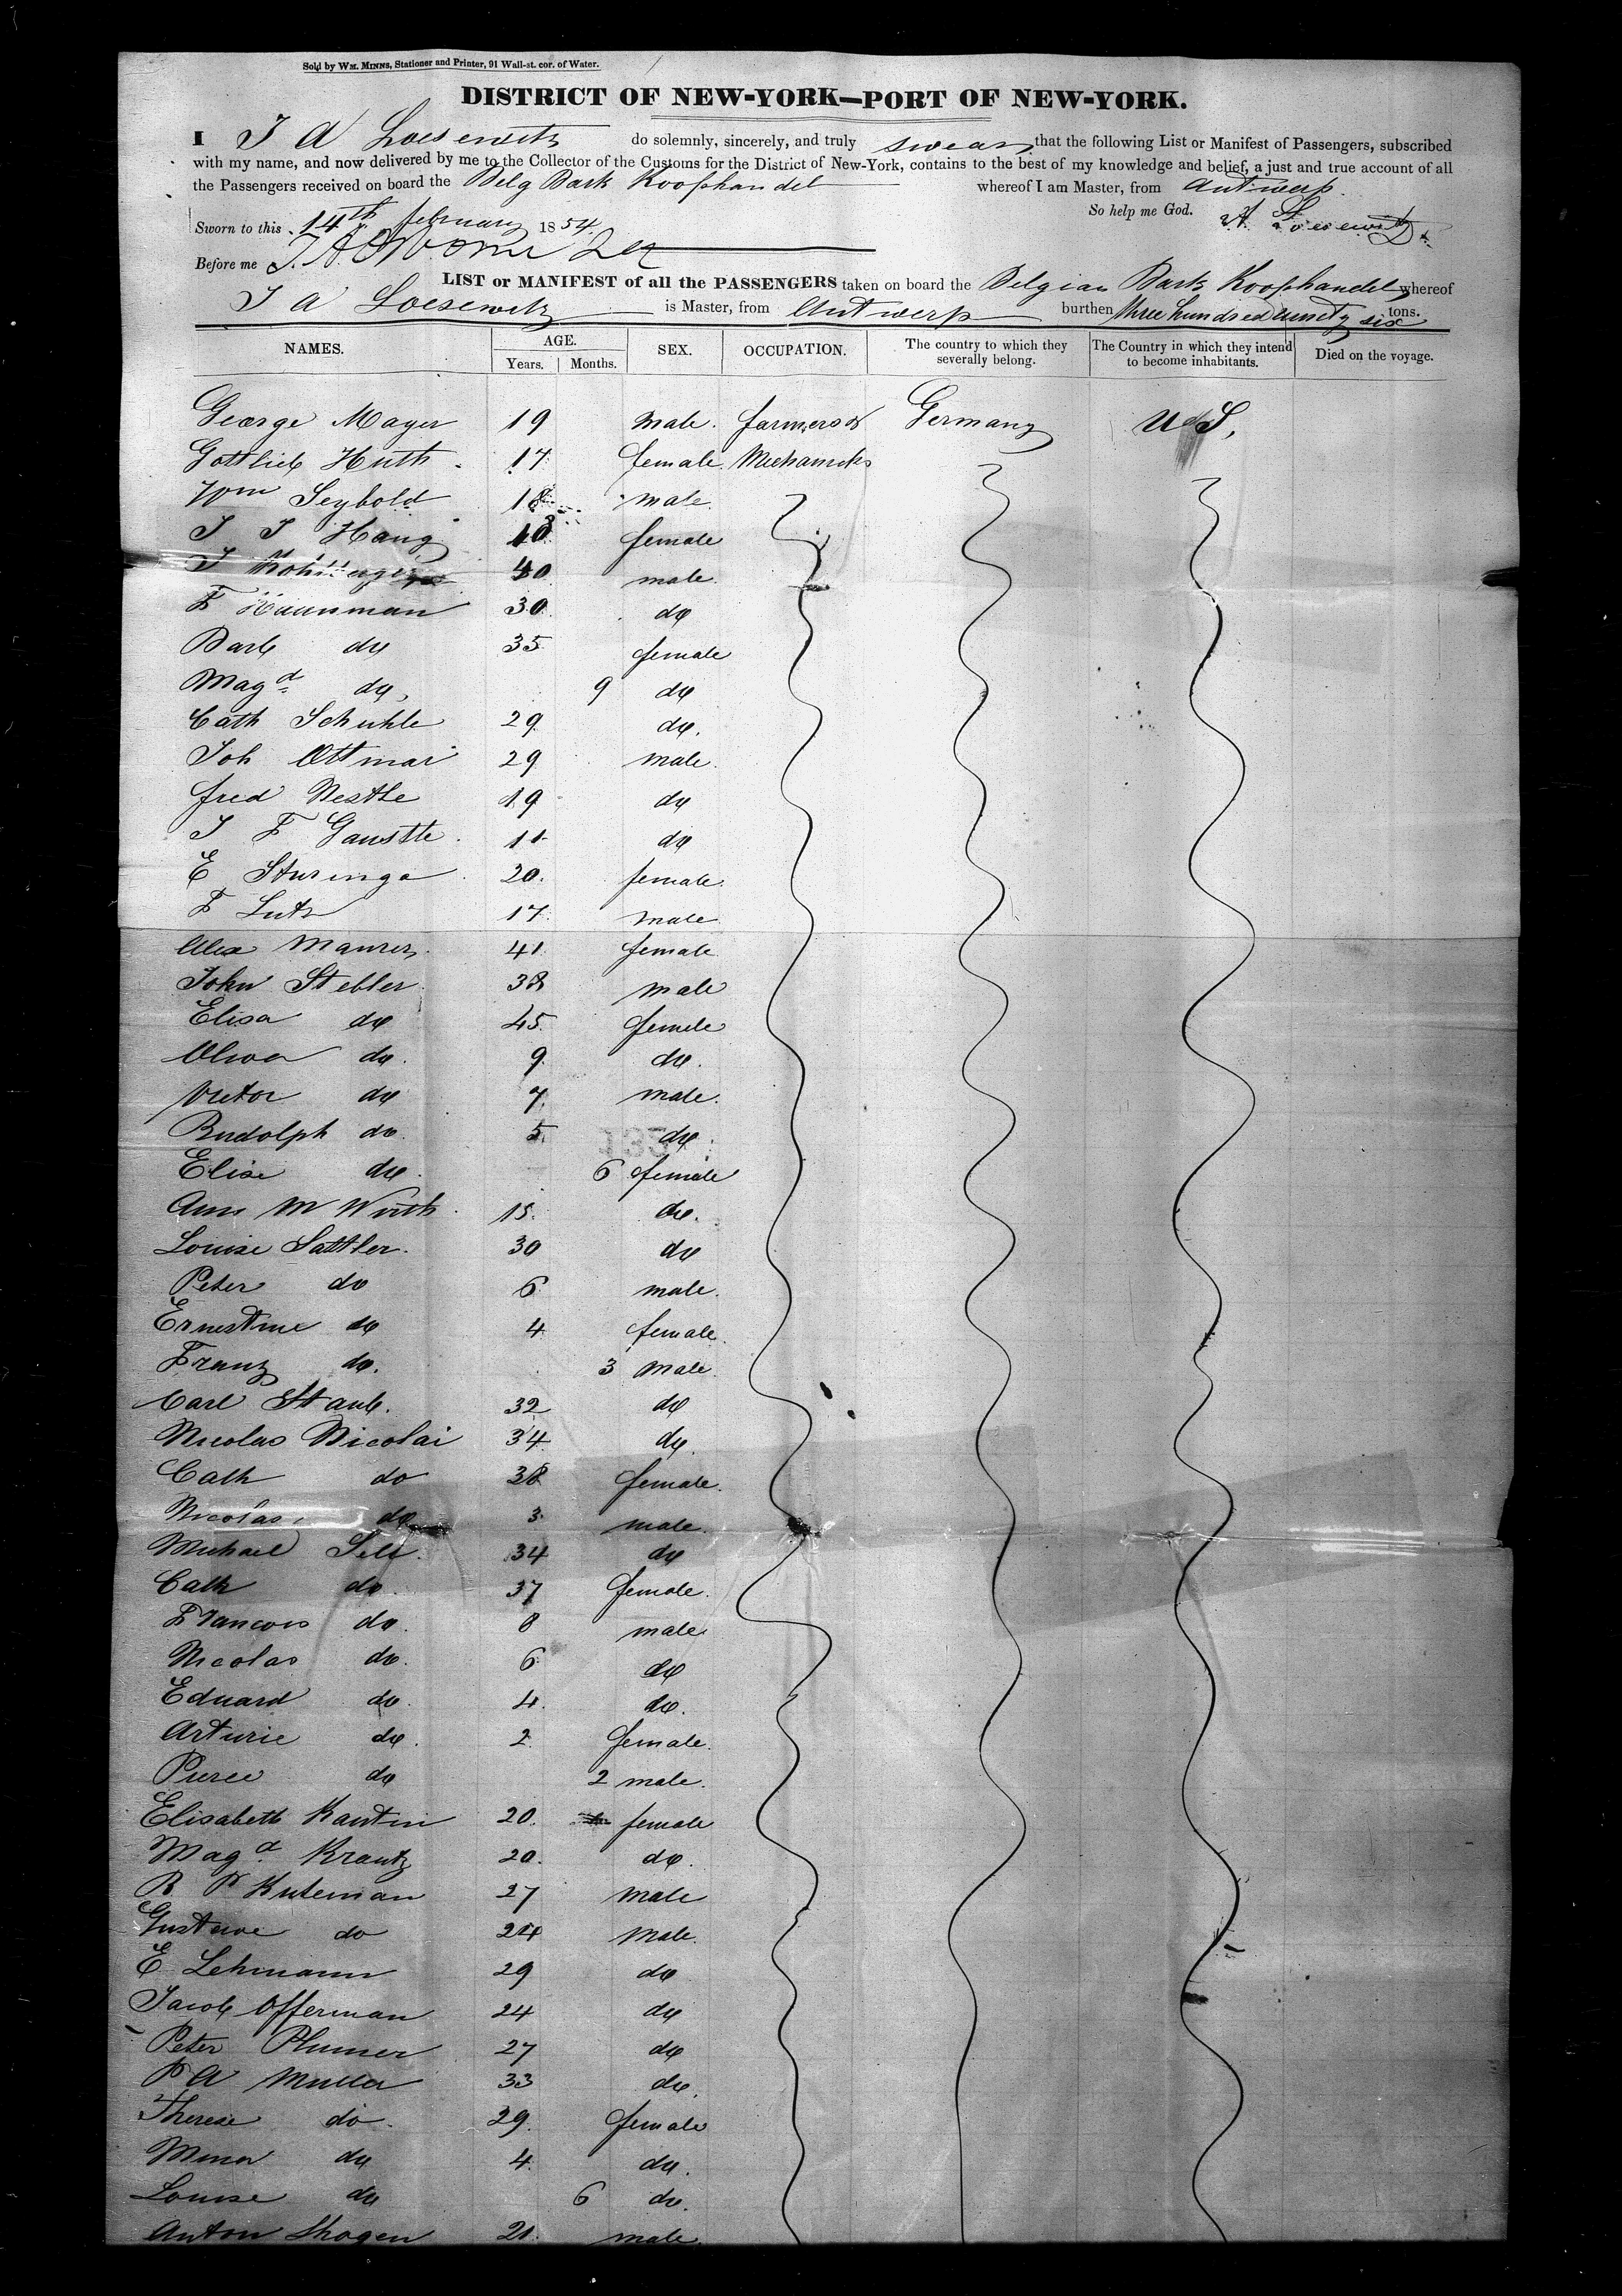 Sold by WM. MINNS, Stationer and Printer, 91 Wall-st. cor. of Water.
DISTRICT OF NEW-YORK—PORT OF NEW-YORK.
I J A Loesewitz do solemnly, sincerely, and truly swear that the following List or Manifest of Passengers, subscribed
with my name, and now delivered by me to the Collector of the Customs for the District of New-York, contains to the best of my knowledge and belief, a just and true account of all
the Passengers received on board the Belg Bark Koophandel whereof I am Master, from Antwerp.
Sworn to this 14th february 1854. So help me God. A Loesewitz
Before me
LIST or MANIFEST of all the PASSENGERS taken on board the Belgian Bark Koophandel whereof
J A Loesewitz is Master, from Antwerp burthen three hundred ninety six tons.
NAMES. AGE. Years. Months. SEX. OCCUPATION. The country to which they severally belong. The Country in which they intend to become inhabitants. Died on the voyage.
George Mayer 19 male. farmers & Germany U S,
Gottlieb Huth 17 female. Mechanicks
Wm Seybold 18 male.
J J Haug female
J 40 male.
F Haunman 30 do
Barb do 35 female
Magd do, 9 do
Cath Schuhle 29 do.
Joh Ottmar 29 male.
fred Nestle 19 do
J F Gaustte 11 do
E Sturinga 20. female.
F Lutz 17. male.
Alex Maurer. 41 female
John Stebler 38 male
Elisa do 45. female
do. 9. do.
Victor do 7. male.
Rudolph do. 5. do
Elise do. 6 female
Ann M Wirth. 15. do.
Louise Sattler. 30 do
Peter do 6 male.
Ernestine do 4 female.
Franz do. 3 male.
Carl Staub. 32 do
Nicolas Nicolai 34 do.
Cath do 38 female.
Nicolas do 3. male.
Michael 34 do
Cath do. 37 female.
Francois do. 8 male.
Nicolas do. 6 do
Eduard do. 4. do.
Arturie do. 2. female.
Pierre do 2 male.
Elisabeth Kantin 20. female
Magd Krantz 20. do.
R P Kuteman 27 male
Gustave do 24 male.
E Lehmann 29 do
Jacob Offerman 24 do
Peter Plumer 27 do
P A Muller 33 do.
Therese do. 29. female
Mina do 4. do.
Louise do 6 do.
Anton Shogen 21. male.